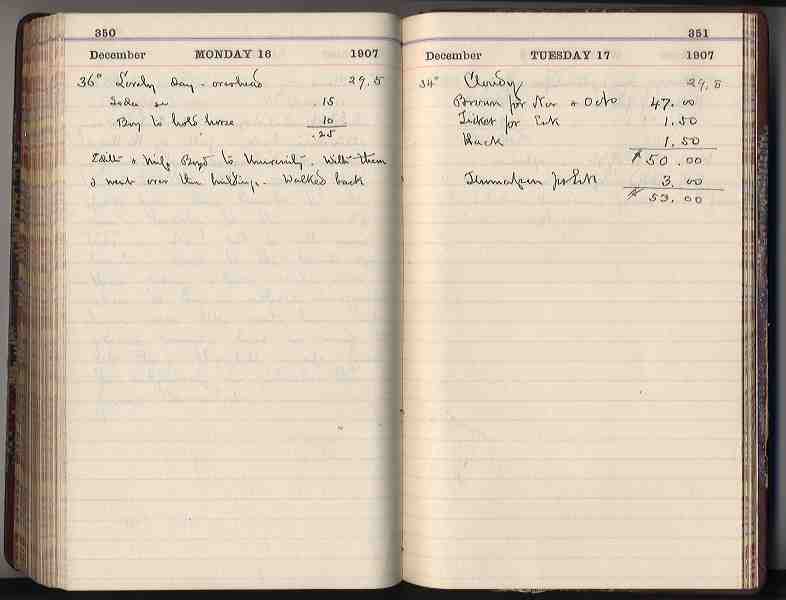 350
December MONDAY 16 1907
36° Lovely day - overhead 29.5
Soda .15
Boy to hold horse 10
.25
Edith & Miss Boyd to University. With them
I went over the buildings. Walked back
351
December TUESDAY 17 1907
34° Cloudy 29.8
Brown for Nov & Octo 47.00
Ticket for 1.50
Hack 1.50
50.00
for 3.00
53.00